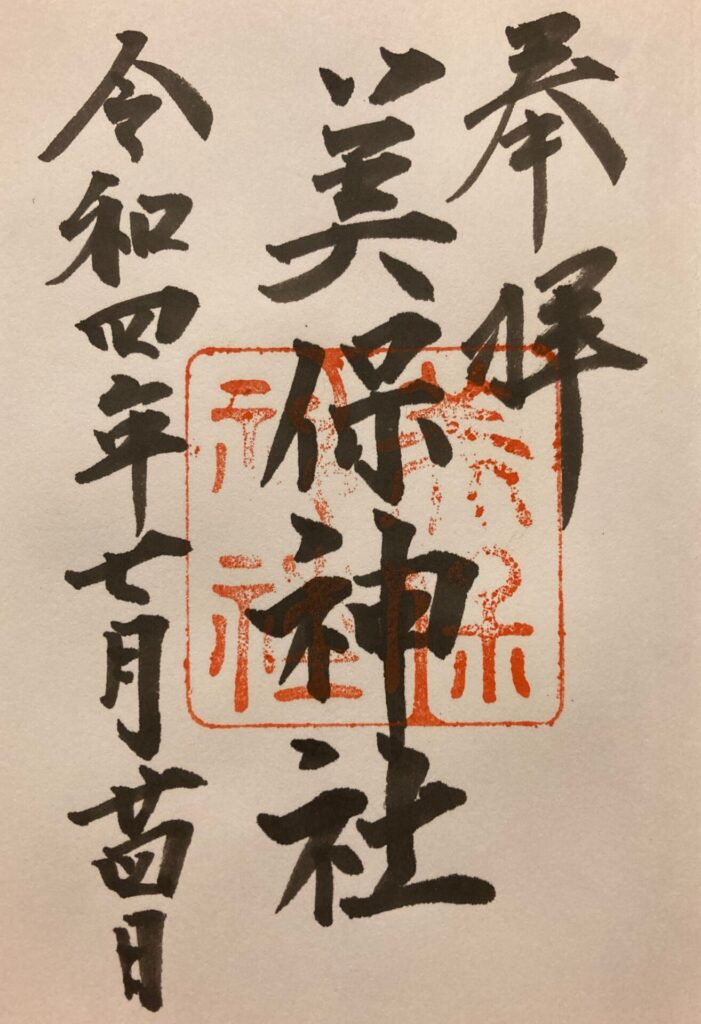 奉拝
美保神社
令和四年七月廿四日
美保
神社